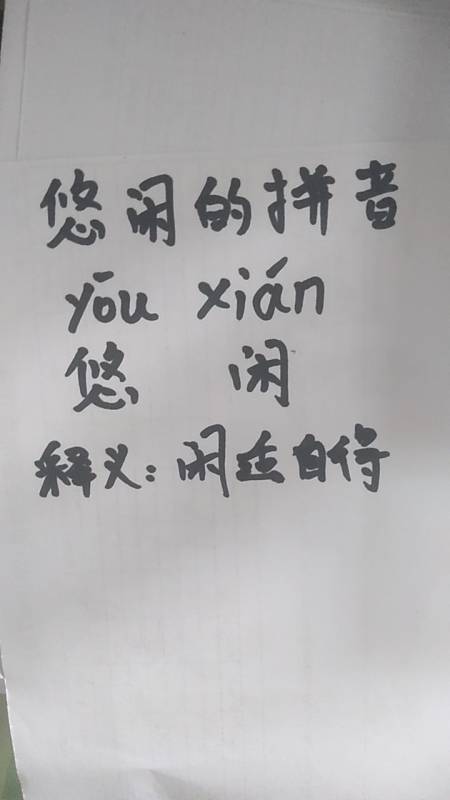 悠闲的拼音
yōu xián
悠 闲
释义：闲适自得